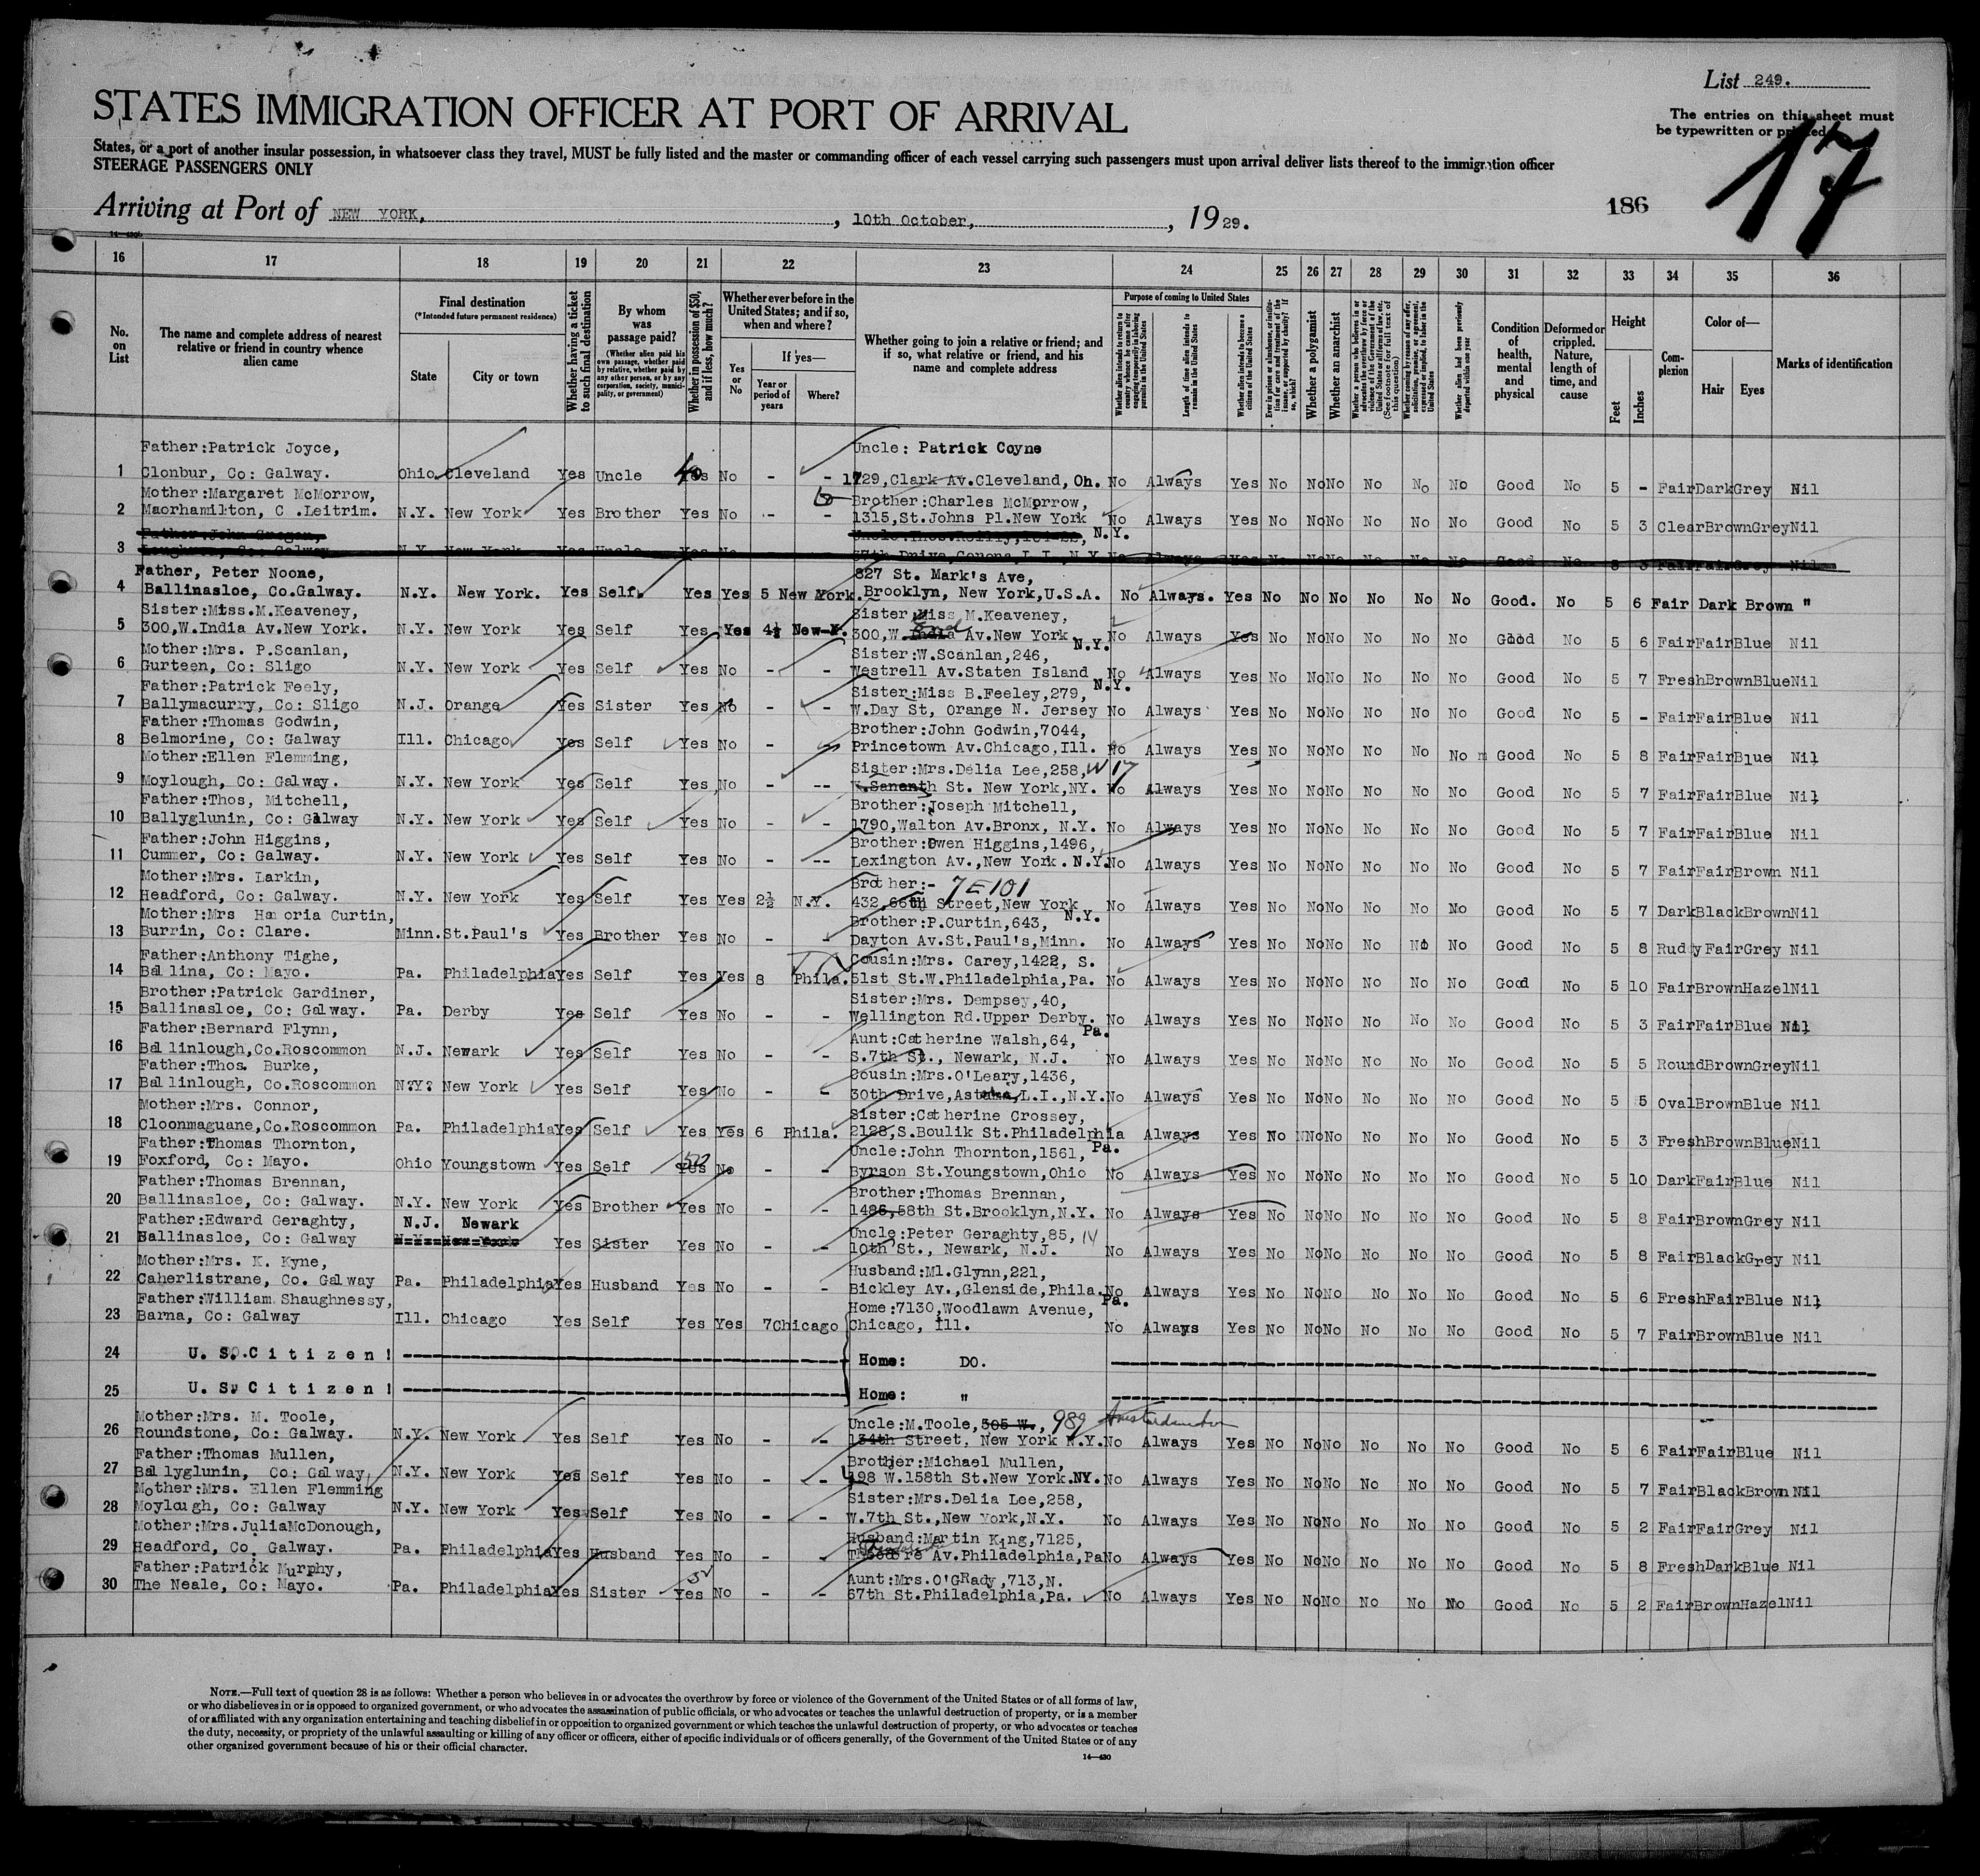 List 249.
STATES IMMIGRATION OFFICER AT PORT OF ARRIVAL
The entries on this sheet must
be typewritten or printed.
17
States, or a port of another insular possession, in whatsoever class they travel, MUST be fully listed and the master or commanding officer of each vessel carrying such passengers must upon arrival deliver lists thereof to the immigration officer
STEERAGE PASSENGERS ONLY
Arriving at Port of NEW YORK, , 10th October, , 19 29.
186
16 17 18 19 20 21 22 23 24 25 26 27 28 29 30 31 32 33 34 35 36
No. on List
The name and complete address of nearest relative or friend in country whence alien came
Final destination
(*Intended future permanent residence)
State City or town
Whether having a ticket to such final destination
By whom was passage paid?
(Whether alien paid his own passage, whether paid by relative, whether paid by any other person, or by any corporation, society, municipality, or government)
Whether in possession of $50, and if less, how much?
Whether ever before in the United States; and if so, when and where?
Yes or No
If yes—
Year or period of years Where?
Whether going to join a relative or friend; and if so, what relative or friend, and his name and complete address
Purpose of coming to United States
Length of time alien intends to remain in the United States
Whether alien intends to become a citizen of the United States
Whether a polygamist
Whether an anarchist
Whether alien had been previously deported within one year
Condition of health, mental and physical
Deformed or crippled. Nature, length of time, and cause
Height
Feet Inches
Complexion
Color of—
Hair Eyes
Marks of identification
Father:Patrick Joyce, Uncle: Patrick Coyne
1 Clonbur, Co: Galway. Ohio Cleveland Yes Uncle 40 No - - 1729,Clark Av.Cleveland, Oh. No Always Yes No No No No No No Good No 5 - Fair Dark Grey Nil
Mother:Margaret McMorrow, Brother:Charles McMorrow,
2 Maorhamilton, C .Leitrim. N.Y. New York Yes Brother Yes No - - 1315,St.Johns Pl.New York N.Y. No Always Yes No No No No No No Good No 5 3 Clear Brown Grey Nil
3
Father, Peter Noone, 827 St. Mark's Ave,
4 Ballinasloe, Co.Galway. N.Y. New York. Yes Self. Yes Yes 5 New York. Brooklyn, New York,U.S.A. No Always. Yes No No No No No No Good. No 5 6 Fair Dark Brown "
Sister:Miss.M.Keaveney, Sister Miss M.Keaveney,
5 300,W.India Av.New York. N.Y. New York Yes Self Yes Yes 4½ New Y. 300,W. Av.New York N.Y. No Always Yes No No No No No No Good No 5 6 Fair Fair Blue Nil
Mother:Mrs. P.Scanlan, Sister:W.Scanlan,246,
6 Gurteen, Co: Sligo N.Y. New York Yes Self Yes No - - Westrell Av.Staten Island N.Y. No Always Yes No No No No No No Good No 5 7 Fresh Brown Blue Nil
Father:Patrick Feely, Sister:Miss B.Feeley,279,
7 Ballymacurry, Co: Sligo N.J. Orange Yes Sister Yes No - - W.Day St, Orange N. Jersey No Always Yes No No No No No No Good No 5 - Fair Fair Blue Nil
Father:Thomas Godwin, Brother:John Godwin,7044,
8 Belmorine, Co: Galway Ill. Chicago Yes Self Yes No - - Princetown Av.Chicago,Ill. No Always Yes No No No No No No Good No 5 8 Fair Fair Blue Nil
Mother:Ellen Flemming, Sister:Mrs.Delia Lee,258, W 17
9 Moylough, Co: Galway. N.Y. New York Yes Self Yes No - -- St. New York,NY. No Always Yes No No No No No No Good No 5 7 Fair Fair Blue Nil
Father:Thos, Mitchell, Brother:Joseph Mitchell,
10 Ballyglunin, Co: Galway N.Y. New York Yes Self Yes No - - 1790,Walton Av.Bronx, N.Y. No Always Yes No No No No No No Good No 5 7 Fair Fair Blue Nil
Father:John Higgins, Brother:Owen Higgins,1496,
11 Cummer, Co: Galway. N.Y. New York Yes Self Yes No - -- Lexington Av.,New York. N.Y. No Always Yes No No No No No No Good No 5 7 Fair Fair Brown Nil
Mother:Mrs. Larkin, Brother:- 7 E 101
12 Headford, Co: Galway. N.Y. New York Yes Self Yes Yes 2½ N.Y. 432,66th Street,New York N.Y. No Always Yes No No No No No No Good No 5 7 Dark Black Brown Nil
Mother:Mrs Hanoria Curtin, Brother:P.Curtin,643,
13 Burrin, Co: Clare. Minn. St.Paul's Yes Brother Yes No - - Dayton Av.St.Paul's,Minn. No Always Yes No No No No No No Good No 5 8 Ruddy Fair Grey Nil
Father:Anthony Tighe, Cousin:Mrs. Carey,1422, S.
14 Ballina, Co: Mayo. Pa. Philadelphia Yes Self Yes Yes 8 Phila. 51st St.W.Philadelphia,Pa. No Always Yes No No No No No No Good No 5 10 Fair Brown Hazel Nil
Brother:Patrick Gardiner, Sister:Mrs. Dempsey,40,
15 Ballinasloe, Co: Galway. Pa. Derby Yes Self Yes No - - Wellington Rd.Upper Derby. Pa. No Always Yes No No No No No No Good No 5 3 Fair Fair Blue Nil
Father:Bernard Flynn, Aunt:Catherine Walsh,64,
16 Ballinlough,Co.Roscommon N.J. Newark Yes Self Yes No - - S.7th St., Newark, N.J. No Always Yes No No No No No No Good No 5 5 Round Brown Grey Nil
Father:Thos. Burke, Cousin:Mrs.O'Leary,1436,
17 Ballinlough, Co.Roscommon N?Y? New York Yes Self Yes No - - 30th Drive,Astoria,L.I.,N.Y. No Always Yes No No No No No No Good No 5 5 Oval Brown Blue Nil
Mother:Mrs. Connor, Sister:Catherine Crossey,
18 Cloonmaguane,Co.Roscommon Pa. Philadelphia Yes Self Yes Yes 6 Phila. 2128,S.Boulik St.Philadelphia Pa. Always Yes No No No No No No Good No 5 3 Fresh Brown Blue Nil
Father:Thomas Thornton, Uncle:John Thornton,1561,
19 Foxford, Co: Mayo. Ohio Youngstown Yes Self Yes No - - Byrson St.Youngstown,Ohio No Always Yes No No No No No No Good No 5 10 Dark Fair Blue Nil
Father:Thomas Brennan, Brother:Thomas Brennan,
20 Ballinasloe, Co: Galway. N.Y. New York Yes Brother Yes No - - 1486,58th St.Brooklyn,N.Y. No Always Yes No No No No No No Good No 5 8 Fair Brown Grey Nil
Father:Edward Geraghty, N.J. Newark Uncle:Peter Geraghty,85, 14
21 Ballinasloe, Co: Galway N.Y. New York Yes Sister Yes No - - 10th St., Newark, N.J. No Always Yes No No No No No No Good No 5 8 Fair Black Grey Nil
Mother:Mrs. K. Kyne, Husband:Ml.Glynn,221,
22 Caherlistrane, Co. Galway Pa. Philadelphia Yes Husband Yes No - - Bickley Av.,Glenside,Phila. Pa. No Always Yes No No No No No No Good No 5 6 Fresh Fair Blue Nil
Father:William Shaughnessy, Home:7130,Woodlawn Avenue,
23 Barna, Co: Galway Ill. Chicago Yes Self Yes Yes 7 Chicago Chicago, Ill. No Always Yes No No No No No No Good No 5 7 Fair Brown Blue Nil
24 U. S. C i t i z e n ! Home: DO.
25 U. S. C i t i z e n ! Home: "
Mother:Mrs. M. Toole, Uncle:M.Toole,505 W., 989 Amsterdam Av
26 Roundstone, Co: Galway. N.Y. New York Yes Self Yes No - - 134th Street, New York N.Y. No Always Yes No No No No No No Good No 5 6 Fair Fair Blue Nil
Father:Thomas Mullen, Brother:Michael Mullen,
27 Ballyglunin, Co: Galway, N.Y. New York Yes Self Yes No - - 498 W.158th St.New York.NY. No Always Yes No No No No No No Good No 5 7 Fair Black Brown Nil
Mother:Mrs. Ellen Flemming Sister:Mrs.Delia Lee,258,
28 Moylough, Co: Galway N.Y. New York Yes Self Yes No - - W.7th St.,New York,N.Y. No Always Yes No No No No No No Good No 5 2 Fair Fair Grey Nil
Mother:Mrs.JuliaMcDonough, Husband:Martin King,7125,
29 Headford, Co. Galway. Pa. Philadelphia Yes Husband Yes No - - Av.Philadelphia,Pa No Always Yes No No No No No No Good No 5 8 Fresh Dark Blue Nil
Father:Patrick Murphy, Aunt:Mrs.O'GRady,713,N.
30 The Neale, Co: Mayo. Pa. Philadelphia Yes Sister Yes No - - 67th St.Philadelphia,Pa. No Always Yes No No No No No No Good No 5 2 Fair Brown Hazel Nil
NOTE.—Full text of question 28 is as follows: Whether a person who believes in or advocates the overthrow by force or violence of the Government of the United States or of all forms of law,
or who disbelieves in or is opposed to organized government, or who advocates the assassination of public officials, or who advocates or teaches the unlawful destruction of property, or is a member
of or affiliated with any organization entertaining and teaching disbelief in or opposition to organized government or which teaches the unlawful destruction of property, or who advocates or teaches
the duty, necessity, or propriety of the unlawful assaulting or killing of any officer or officers, either of specific individuals or of officers generally, of the Government of the United States or of any
other organized government because of his or their official character.
14—430